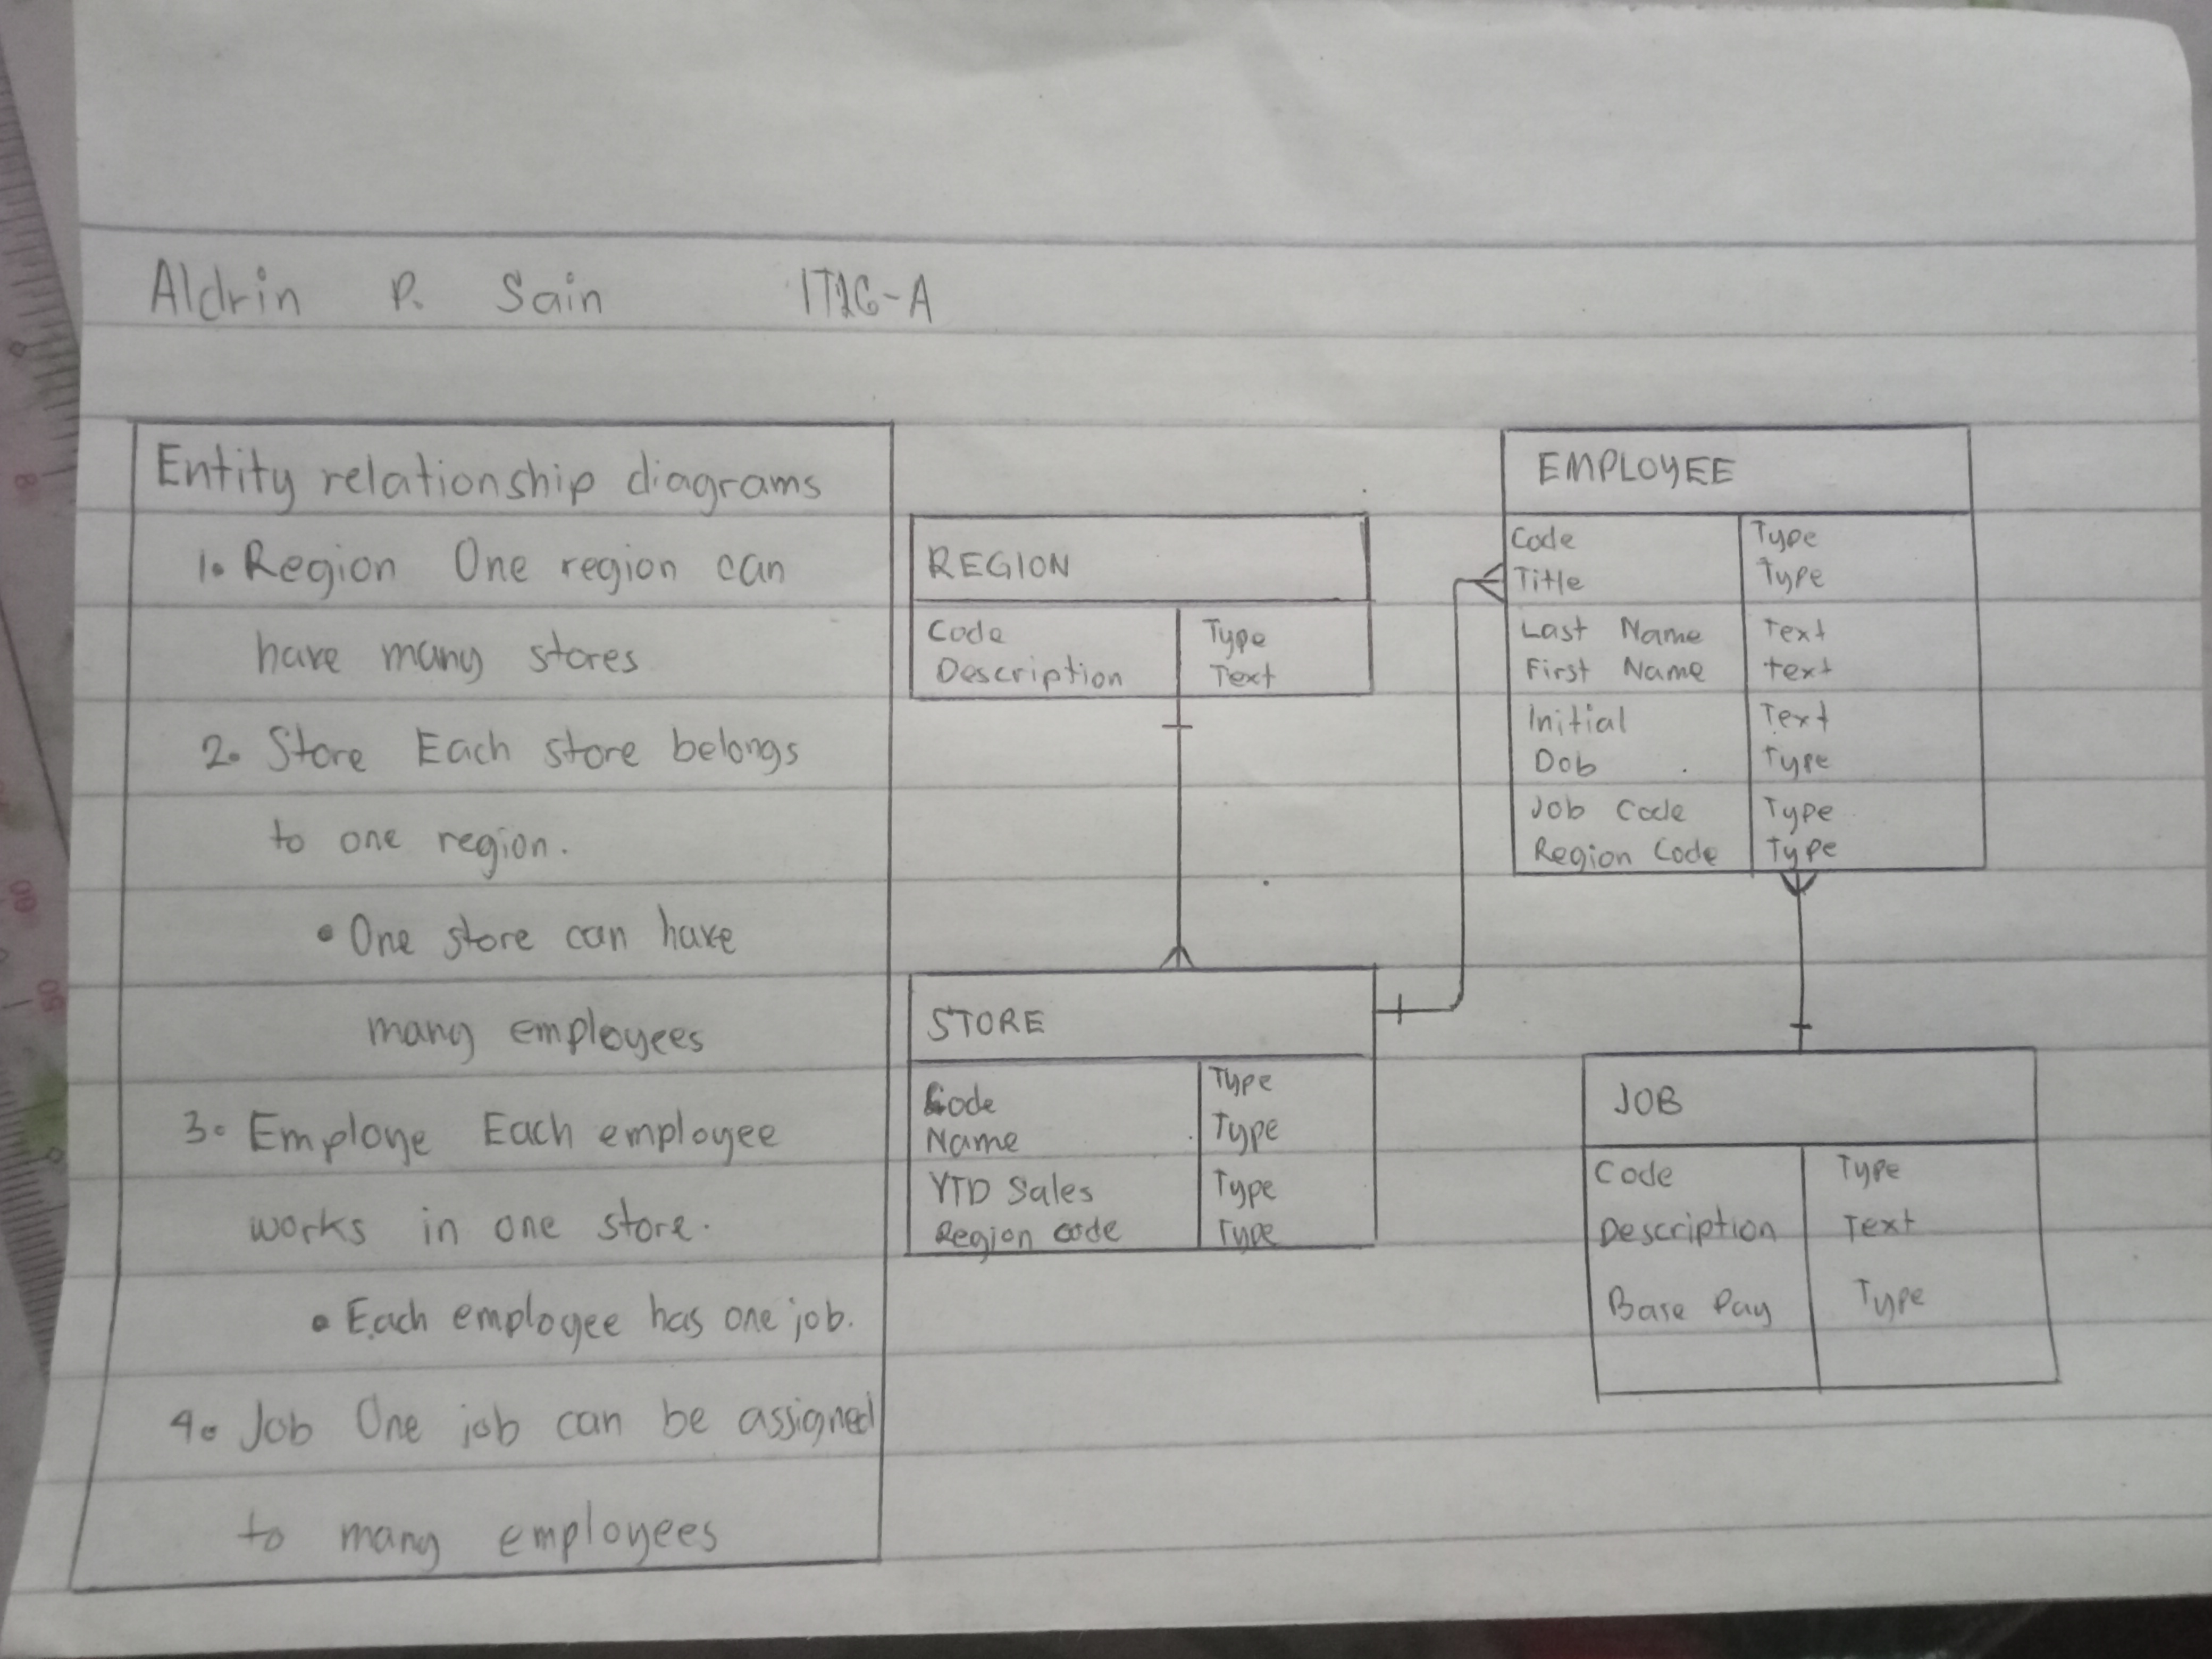 Aldrin P. Sain IT1C-A
Entity relationship diagrams
1. Region One region can
have many stores
2. Store Each store belongs
to one region.
• One store can have
many employees
3. Employe Each employee
works in one store.
• Each employee has one job.
4. Job One job can be assigned
to many employees
REGION
Code Type
Description Text
STORE
Code Type
Name Type
YTD Sales Type
Region code Type
EMPLOYEE
Code Type
Title Type
Last Name Text
First Name text
Initial Text
Dob Type
Job Code Type
Region Code Type
JOB
Code Type
Description Text
Base Pay Type